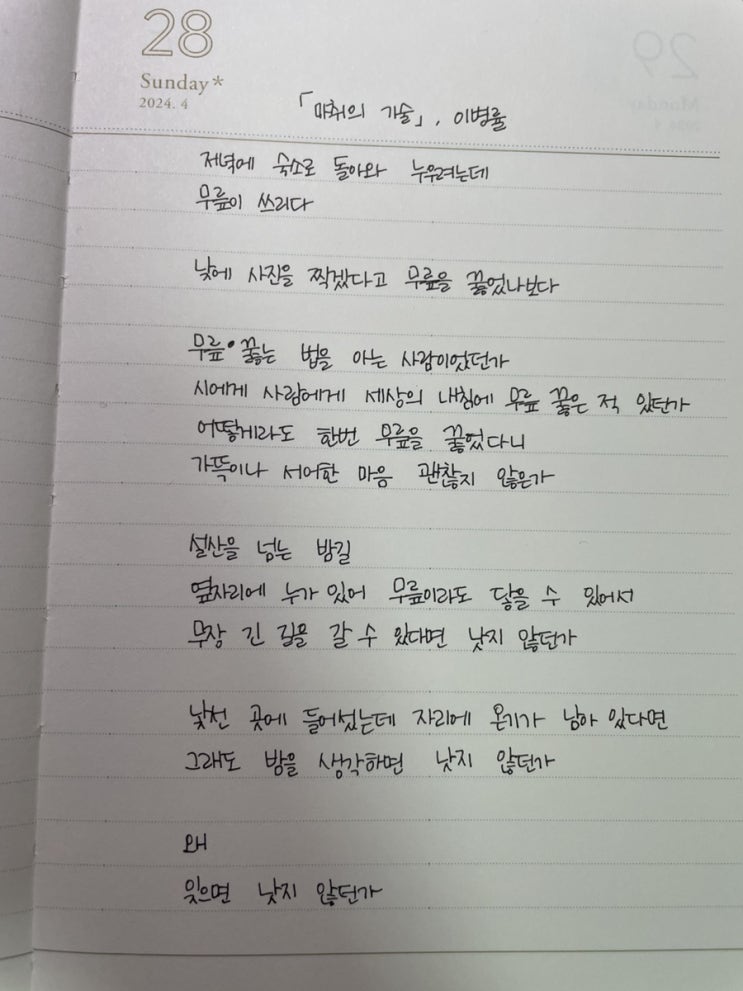 28
Sunday*
2024. 4
「마취의 기술」, 이병률
저녁에 숙소로 돌아와 누우려는데
무릎이 쓰리다
낮에 사진을 찍겠다고 무릎을 꿇었나보다
무릎 꿇는 법을 아는 사람이었던가
시에게 사람에게 세상의 내침에 무릎 꿇은 적 있던가
어떻게라도 한번 무릎을 꿇었다니
가뜩이나 서어한 마음 괜찮지 않은가
설산을 넘는 밤길
옆자리에 누가 있어 무릎이라도 닿을 수 있어서
무장 긴 길을 갈 수 있다면 낫지 않던가
낯선 곳에 들어섰는데 자리에 온기가 남아 있다면
그래도 밤을 생각하면 낫지 않던가
왜
잊으면 낫지 않던가
29
Monday